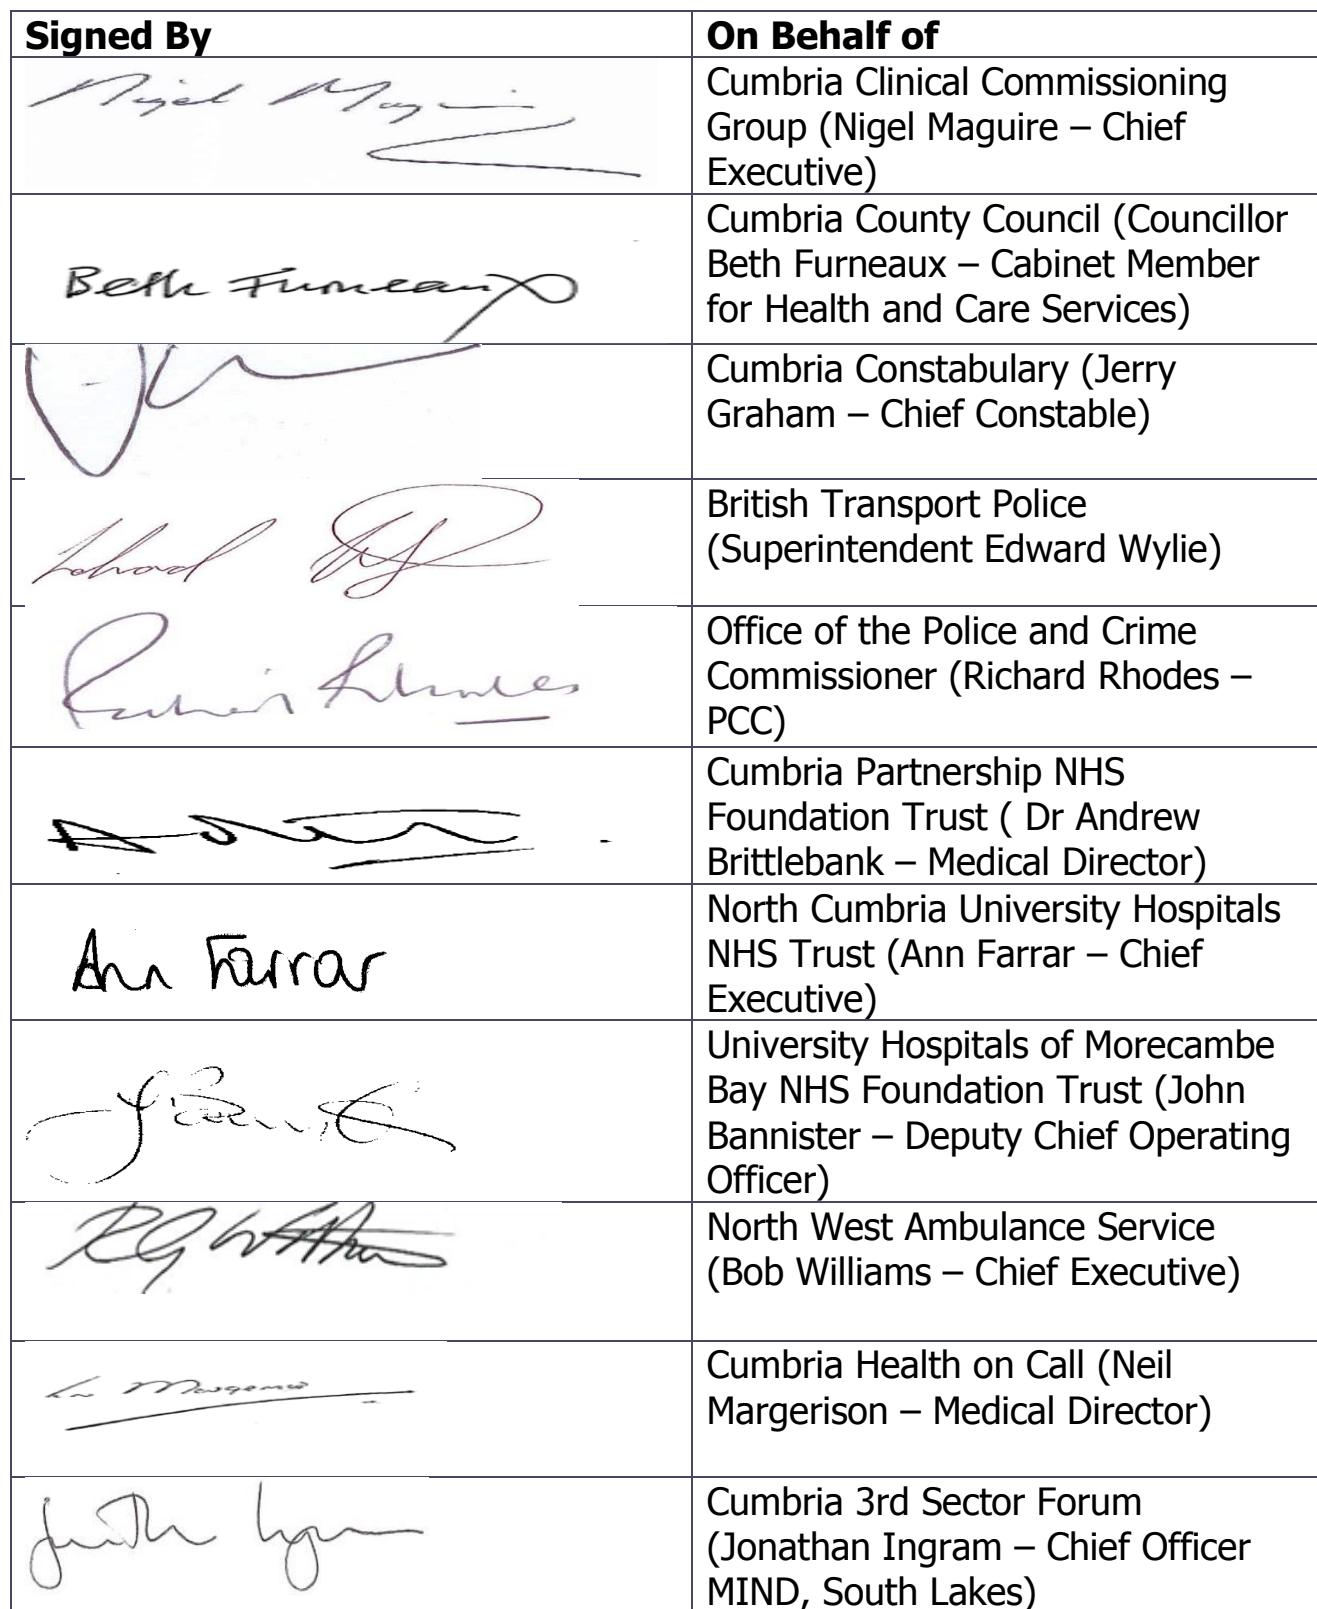 Signed By
On Behalf of
Nigel Maguire
Cumbria Clinical Commissioning
Group (Nigel Maguire – Chief
Executive)
Beth Furneaux
Cumbria County Council (Councillor
Beth Furneaux – Cabinet Member
for Health and Care Services)
Cumbria Constabulary (Jerry
Graham – Chief Constable)
Edward
British Transport Police
(Superintendent Edward Wylie)
Richard Rhodes
Office of the Police and Crime
Commissioner (Richard Rhodes –
PCC)
Cumbria Partnership NHS
Foundation Trust ( Dr Andrew
Brittlebank – Medical Director)
Ann Farrar
North Cumbria University Hospitals
NHS Trust (Ann Farrar – Chief
Executive)
University Hospitals of Morecambe
Bay NHS Foundation Trust (John
Bannister – Deputy Chief Operating
Officer)
North West Ambulance Service
(Bob Williams – Chief Executive)
Cumbria Health on Call (Neil
Margerison – Medical Director)
Cumbria 3rd Sector Forum
(Jonathan Ingram – Chief Officer
MIND, South Lakes)